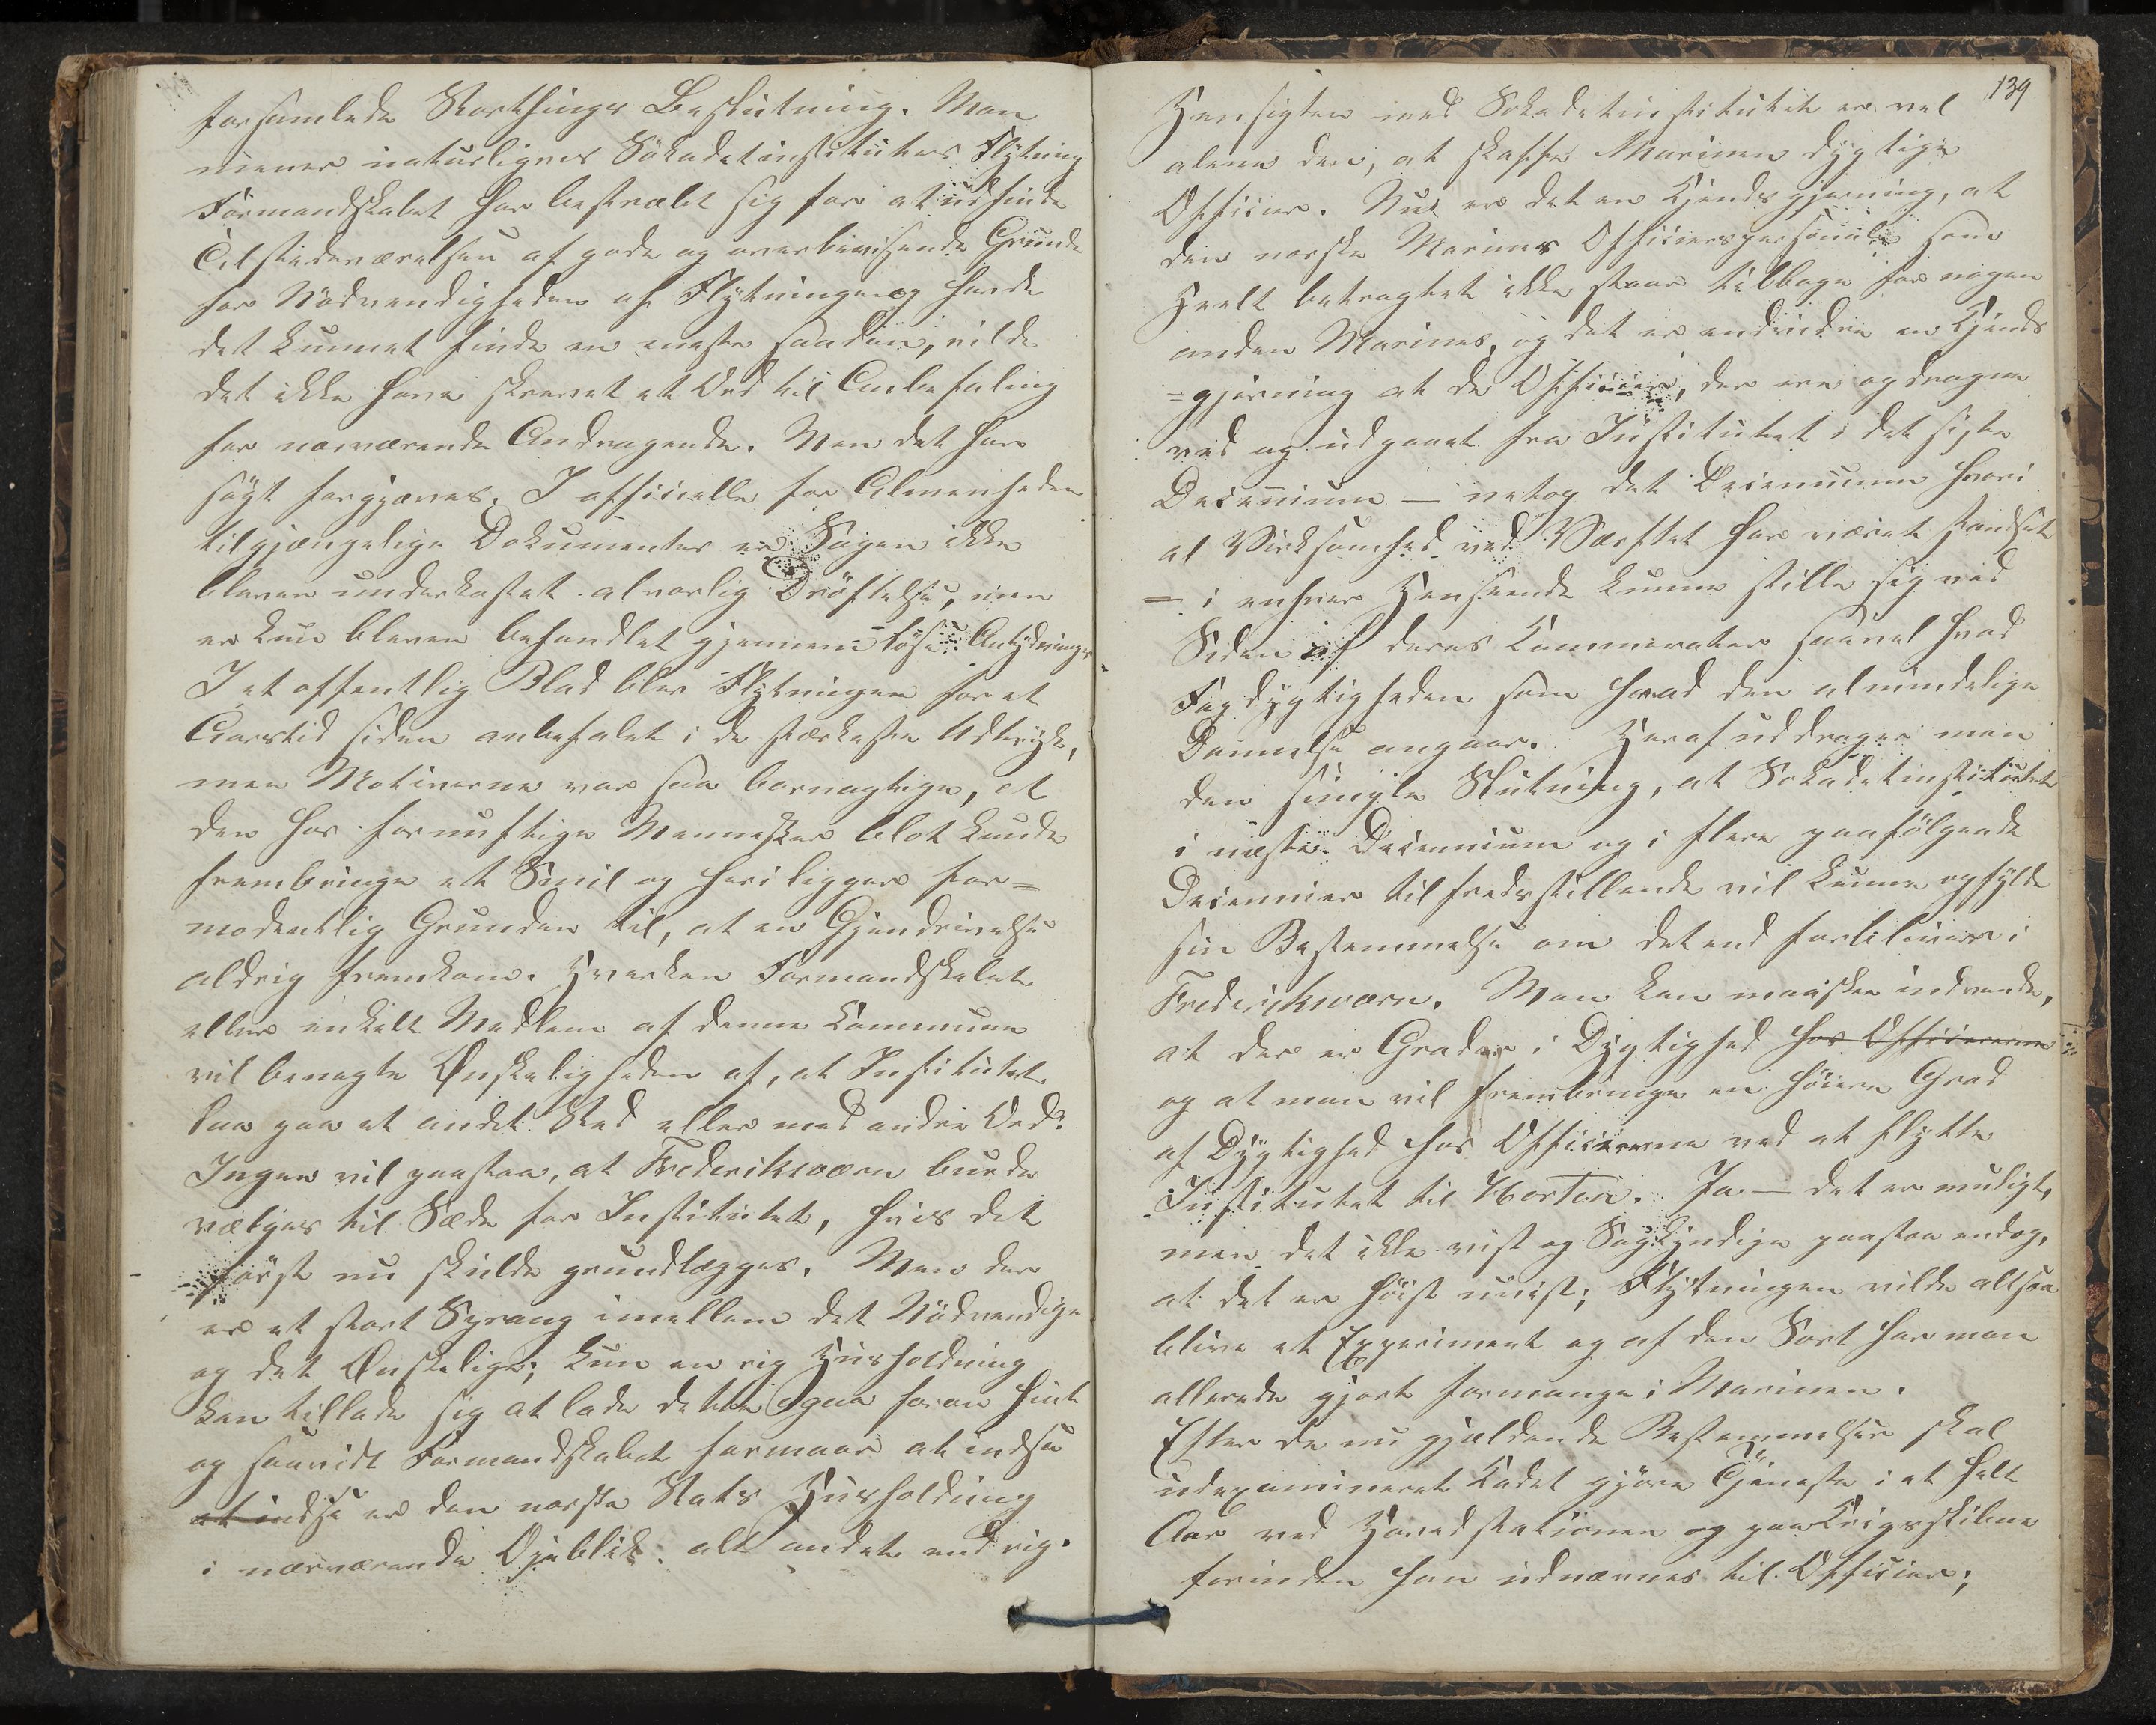 forsamlede Storthings Beslutning. Man
mener naturligvis Sökadetinstitutets Flytning
Formandskabet har bestræbt sig for at udfinde
Tilstedeværelsen af gode og overbevisende Grunde
for Nödvendigheden af Flytningen og havde
det kunnet finde en eneste saadan, vilde
det ikke have skrevet et Ord til Anbefaling
for nærværende Andragende. Men det har
sögt forgjæves. I officielle for Almenheden
tilgjængelige Dokumenter er Sagen ikke
bleven underkastet alvorlig Dröftelse, men
er kun bleven behandlet gjennem löse Antydninger
I et offentlig Blad blev Flytningen for et
Aarstid siden anbefalet i de stærkeste Udtryk,
men Motiverne var saa barnagtige, at
den hos fornuftige Mennesker blot kunde
frembringe et Smil og heri ligger for=
modentlig Grunden til, at en Gjendrivelse
aldrig fremkom. Hverken Formandskabet
eller enkelt Medlem af denne Kommune
vil benegte Ønskeligheden af, at Institutet
laa paa et andet Sted eller med andre Ord:
Ingen vil paastaa, at Frederiksværn burde
vælges til Sæde for Institutet, hvis det
först nu skulde grundlægges. Men der
er et stort Sprang imellem det Nödvendige
og det Ønskelige; kun en rig Husholdning
kan tillade sig at lade dette gaa foran hint
og saavidt Formandskabet formaar at indse
at indse er den norske Stats Husholdning
i nærværende Øjeblik alt andet end rig.
139
Hensigten med Sokadetinstitutet er vel
alene den, at skaffe Marinen dygtige
Officier. Nu er det en Kjendsgjerning, at
den norske Marines Officierspersonale som
Heelt betragtet ikke staar tilbage for nogen
anden Marines, og det er endvidere en Kjends
=gjerning at de Officier, der ere opdragne
ved og udgaaet fra Institutet i det sidste
Decennium — netop det Decennium hvori
al Virksomhed ved Værftet har været standset
— i enhver Henseende kunne stille sig ved
Siden af deres Kammerater saavel hvad
Fagdygtigheden som hvad den almindelige
Dannelse angaar. Heraf uddrager man
den simple Slutning, at Sokadetinstitutet
i næste Decennium og i flere paafölgende
Decennier tilfredsstillende vil kunne opfylde
sin Bestemmelse om det end forbliver i
Frederiksværn. Man kan maaskee indvende,
at der er Grader i Dygtighed hos Officiererne
og at man vil frembringe en höiere Grad
af Dygtighed hos Officierne ved at flytte
Institutet til Horten. Ja — det er muligt,
men det ikke vist og Sagkyndige paastaa endog,
at det er höist uvist; Flytningen vilde altsaa
blive et Experiment og af den Sort har man
allerede gjort formange i Marinen.
Efter de nu gjældende Bestemmelser skal
udexamineret Kadet gjöre Tjeneste i et helt
Aar ved Hovedstationen og paa Krigsskibene
forinden han udnævnes til Officier;